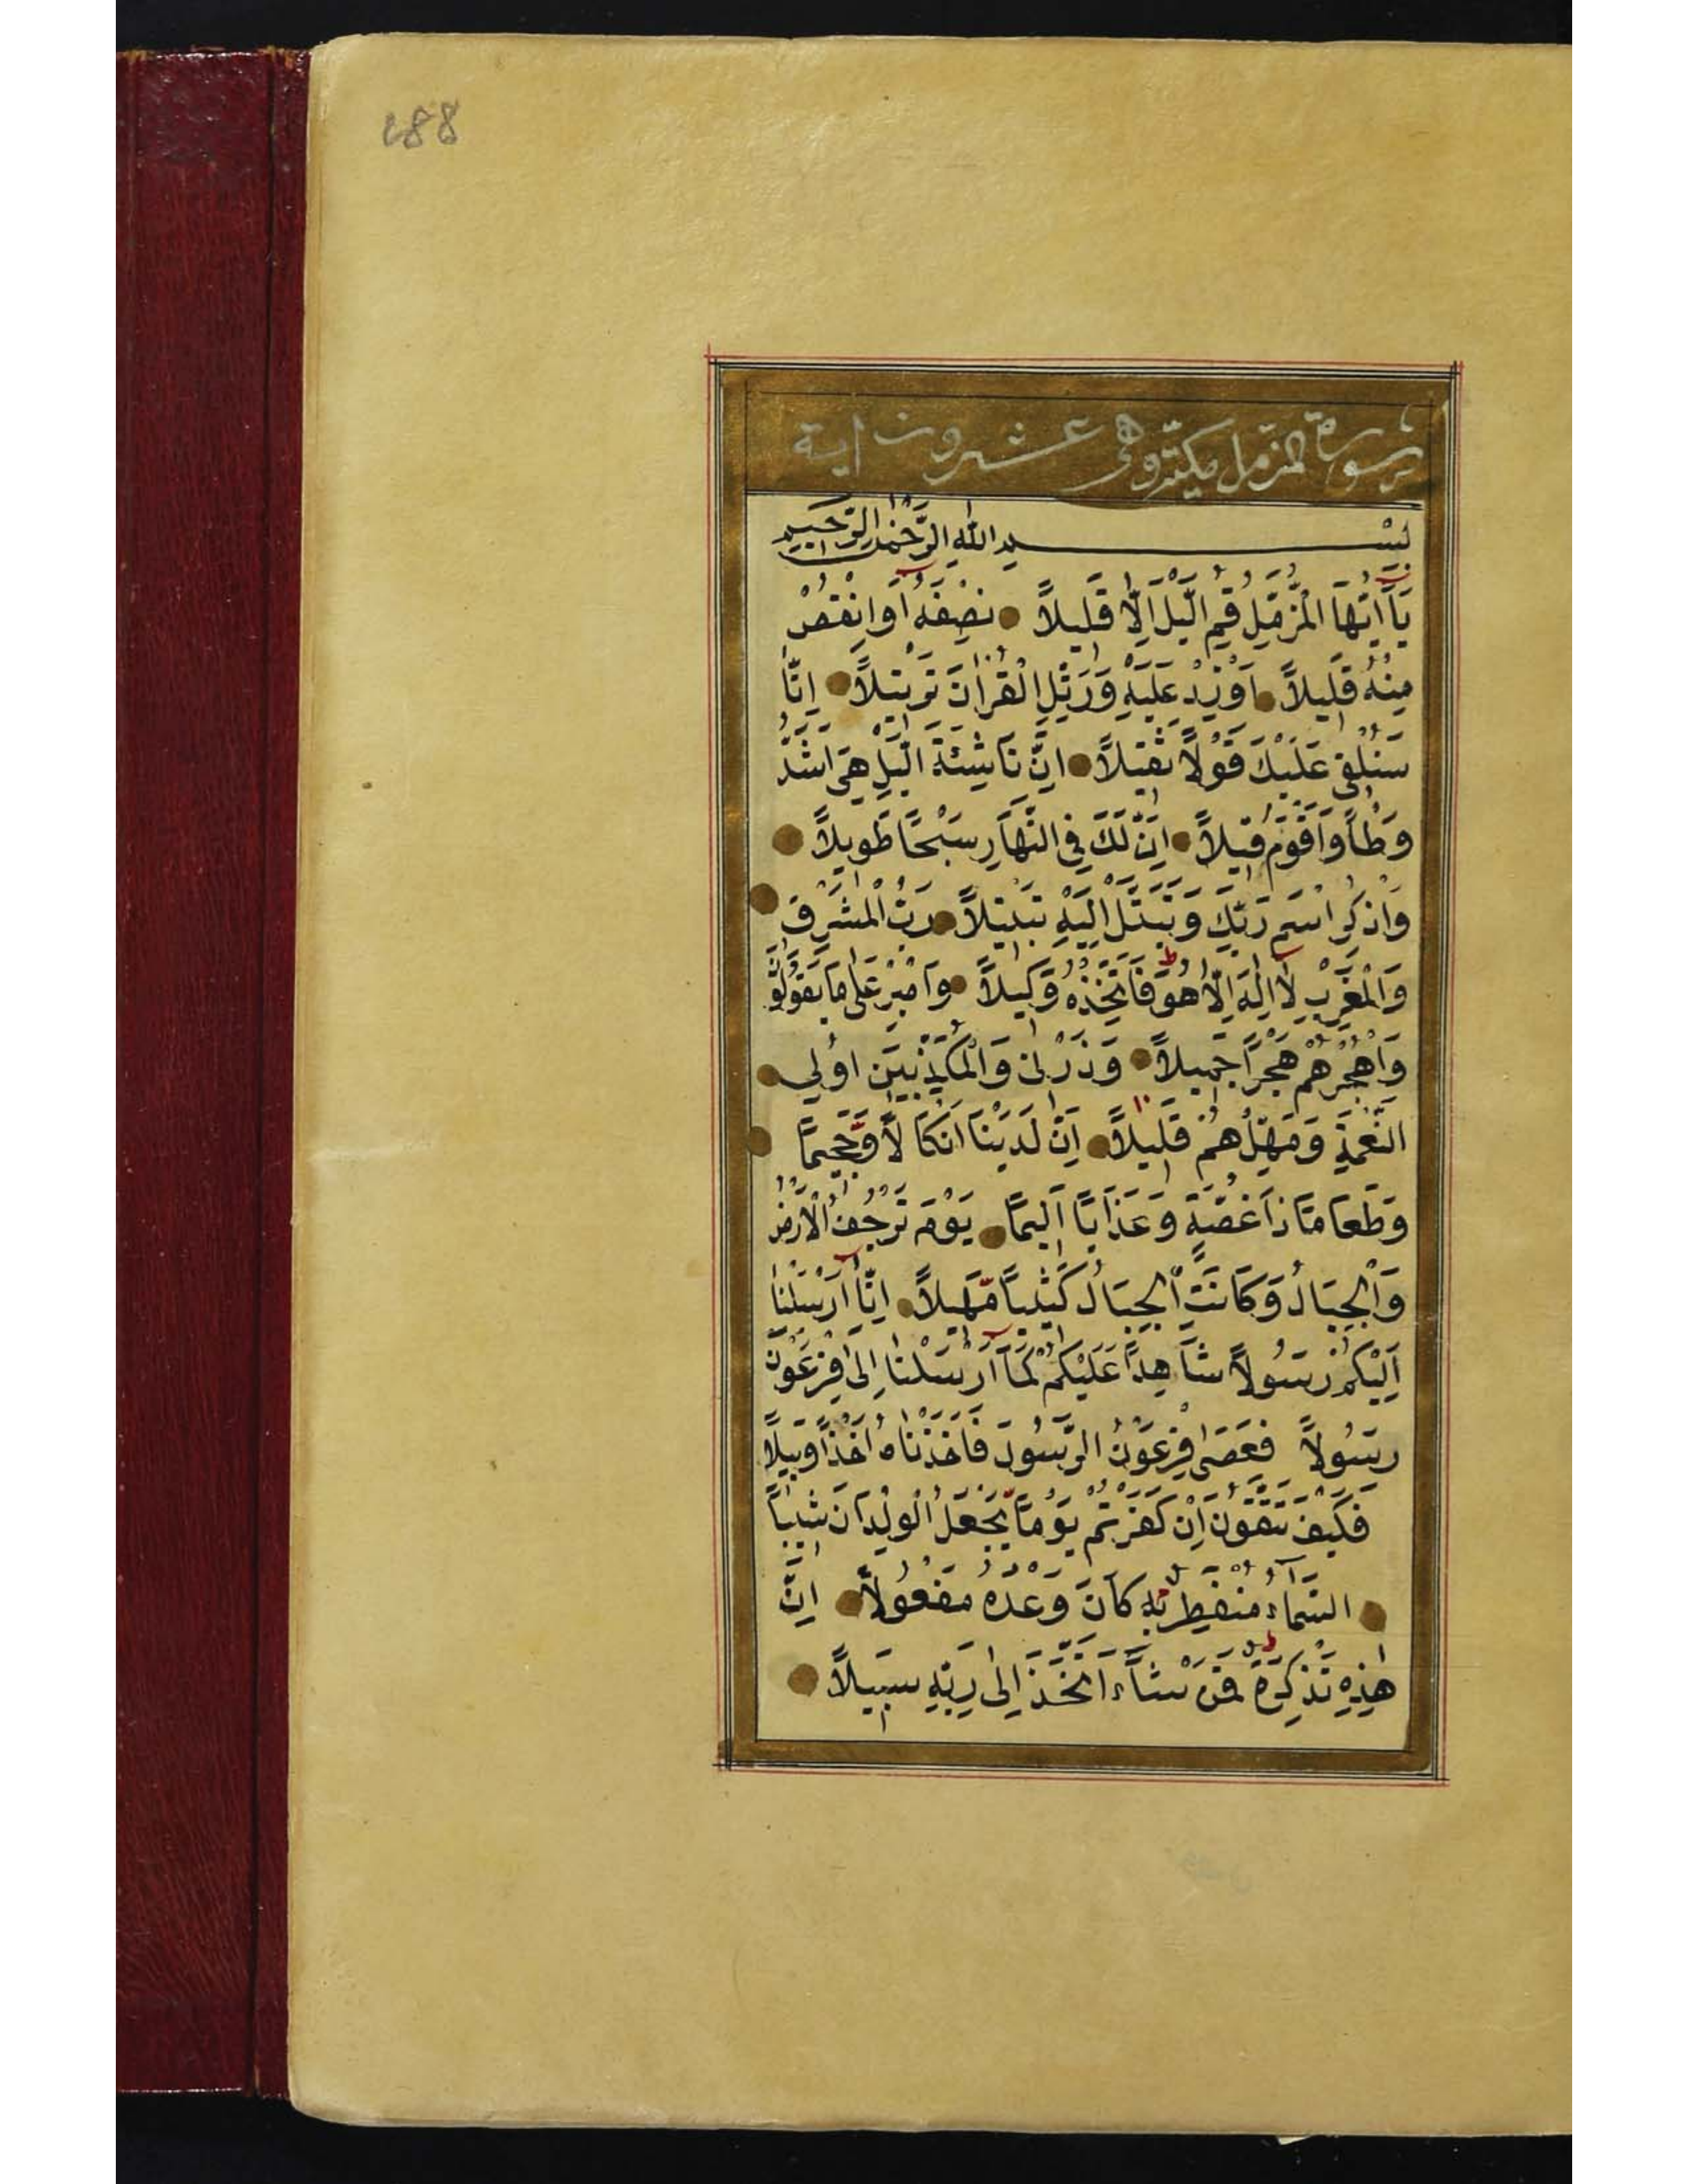 ٤٨٨
سورة المزمل مكية وهي عشرون اية
بِسْمِ اللّٰهِ الرَّحْمٰنِ الرَّحِيمِ
يَآ اَيُّهَا الْمُزَّمِّلُ قُمِ الَّيْلَ اِلَّا قَلِيلاً نِصْفَهُ اَوِ انْقُصْ
مِنْهُ قَلِيلاً اَوْ زِدْ عَلَيْهِ وَرَتِّلِ الْقُرْاٰنَ تَرْتِيلاً اِنَّا
سَنُلْقِى عَلَيْكَ قَوْلاً ثَقِيلاً اِنَّ نَاشِئَةَ الَّيْلِ هِىَ اَشَدُّ
وَطْأً وَاَقْوَمُ قِيلاً اِنَّ لَكَ فِى النَّهَارِ سَبْحًا طَوِيلاً
وَاذْكُرِ اسْمَ رَبِّكَ وَتَبَتَّلْ اِلَيْهِ تَبْتِيلاً رَبُّ الْمَشْرِقِ
وَالْمَغْرِبِ لَا اِلٰهَ اِلَّا هُوَ فَاتَّخِذْهُ وَكِيلاً وَاصْبِرْ عَلٰى مَا يَقُولُونَ
وَاهْجُرْهُمْ هَجْرًا جَمِيلاً وَذَرْنِى وَالْمُكَذِّبِينَ اُولِى
النَّعْمَةِ وَمَهِّلْهُمْ قَلِيلاً اِنَّ لَدَيْنَا اَنْكَالاً وَّجَحِيمًا
وَطَعَامًا ذَا غُصَّةٍ وَعَذَابًا اَلِيمًا يَوْمَ تَرْجُفُ الْاَرْضُ
وَالْجِبَالُ وَكَانَتِ الْجِبَالُ كَثِيبًا مَّهِيلاً اِنَّآ اَرْسَلْنَا
اِلَيْكُمْ رَسُولاً شَاهِدًا عَلَيْكُمْ كَمَآ اَرْسَلْنَا اِلٰى فِرْعَوْنَ
رَسُولاً فَعَصٰى فِرْعَوْنُ الرَّسُولَ فَاَخَذْنَاهُ اَخْذًا وَبِيلاً
فَكَيْفَ تَتَّقُونَ اِنْ كَفَرْتُمْ يَوْمًا يَّجْعَلُ الْوِلْدَانَ شِيبًا
السَّمَآءُ مُنْفَطِرٌ بِهِ كَانَ وَعْدُهُ مَفْعُولاً اِنَّ
هٰذِهِ تَذْكِرَةٌ فَمَنْ شَآءَ اتَّخَذَ اِلٰى رَبِّهِ سَبِيلاً